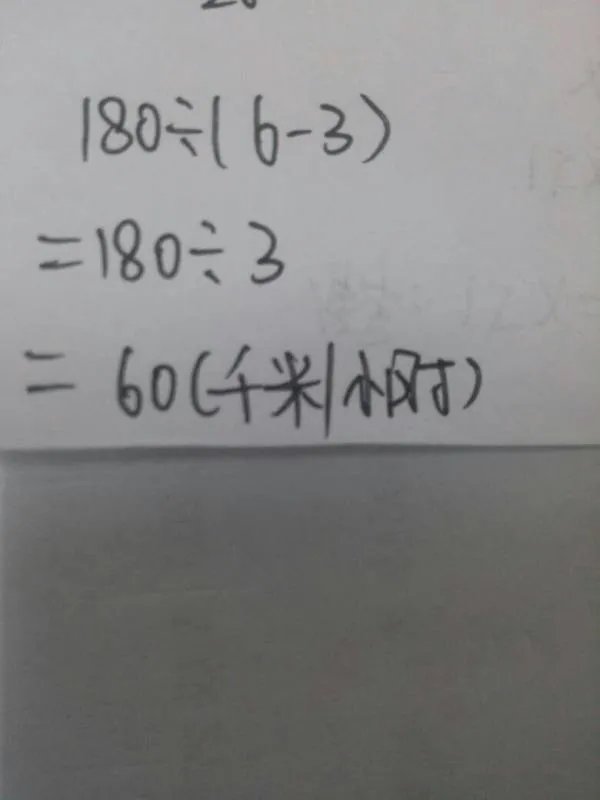 180÷(6-3)
=180÷3
=60(千米/小时)